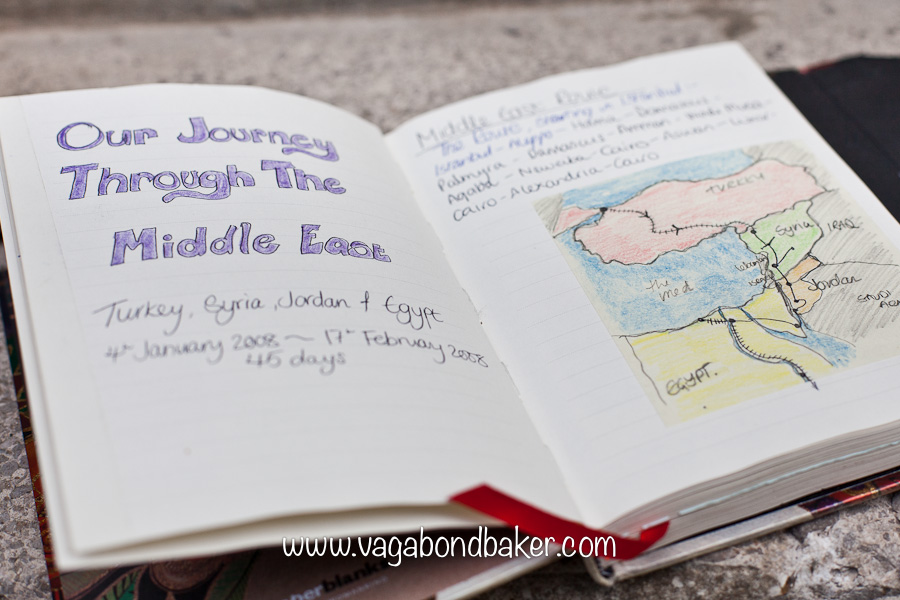 Our Journey
Through The
Middle East
Turkey, Syria, Jordan & Egypt
4th January 2008 ~ 17th February 2008
45 days
Middle East Route
The Route, starting in Istanbul -
Istanbul - Aleppo - Hama - Damascus -
Palmyra - Damascus - Amman - Wadi Musa -
Aqaba - Nuweiba - Cairo - Aswan - Luxor -
Cairo - Alexandria - Cairo
TURKEY
Syria
IRAQ
Jordan
the
Med
SAUDI
EGYPT.
www.vagabondbaker.com